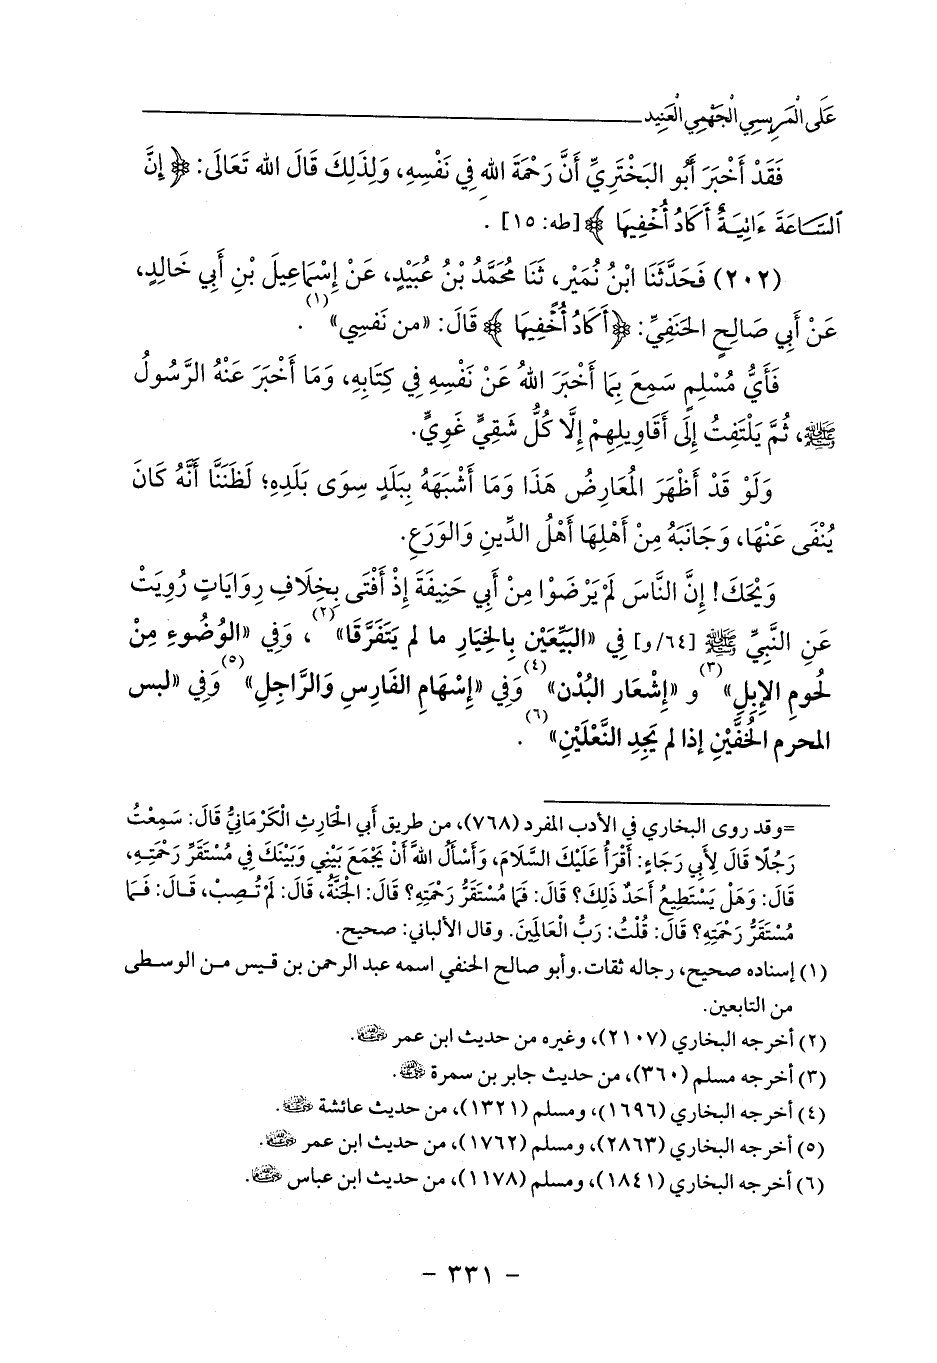 عَلَى الْمَرِيسِي الْجَهْمِي الْعَنِيد
فَقَدْ أَخْبَرَ أَبُو البَخْتَرِيِّ أَنَّ رَحْمَةَ اللهِ فِي نَفْسِهِ، وَلِذَلِكَ قَالَ الله تَعَالَى: ﴿ إِنَّ
ٱلسَّاعَةَ ءَاتِيَةٌ أَكَادُ أُخْفِيهَا ﴾ [طه: ١٥] .
(٢٠٢) فَحَدَّثَنَا ابْنُ نُمَيْر، ثَنَا مُحَمَّدُ بْنُ عُبَيْدٍ، عَنْ إِسْمَاعِيلَ بْنِ أَبِي خَالِدٍ،
عَنْ أَبِي صَالِحٍ الحَنَفِيِّ: ﴿ أَكَادُ أُخْفِيهَا ﴾ قَالَ: «من نَفسِي»(١) .
فَأَيُّ مُسْلِمٍ سَمِعَ بِمَا أَخْبَرَ اللهُ عَنْ نَفْسِهِ فِي كِتَابِهِ، وَمَا أَخْبَرَ عَنْهُ الرَّسُولُ
ﷺ، ثُمَّ يَلْتَفِتُ إِلَى أَقَاوِيلِهِمْ إِلَّا كُلُّ شَقِيٍّ غَوِيٍّ.
وَلَوْ قَدْ أَظْهَرَ المُعَارِضُ هَذَا وَمَا أَشْبَهَهُ بِبَلَدٍ سِوَى بَلَدِهِ؛ لَظَنَنَّا أَنَّهُ كَانَ
يُنْفَى عَنْهَا، وَجَانَبَهُ مِنْ أَهْلِهَا أَهْلُ الدِّينِ وَالوَرَعِ.
وَيْحَكَ! إِنَّ النَّاسَ لَمْ يَرْضَوْا مِنْ أَبِي حَنِيفَةَ إِذْ أَفْتَى بِخِلَافِ رِوَايَاتٍ رُوِيَتْ
عَنِ النَّبِيِّ ﷺ [٦٤/و] فِي «البَيِّعَيْنِ بِالخِيَارِ ما لم يَتَفَرَّقَا»(٢) ، وَفِي «الوُضُوءِ مِنْ
لحُومِ الإِبِلِ»(٣) و «إِشْعَار البُدْن»(٤) وَفِي «إِسْهَامِ الفَارِسِ وَالرَّاجِلِ»(٥) وَفِي «لبس
المحرم الخُفَّيْنِ إذا لم يَجِدِ النَّعْلَيْنِ»(٦) .
=وقد روى البخاري في الأدب المفرد (٧٦٨)، من طريق أَبي الحَارِثِ الْكَرْمَانِيُّ قَالَ: سَمِعْتُ
رَجُلًا قَالَ لِأَبِي رَجَاءٍ: أَقْرَأُ عَلَيْكَ السَّلَامَ، وَأَسْأَلُ اللهَ أَنْ يَجْمَعَ بَيْنِي وَبَيْنَكَ فِي مُسْتَقَرِّ رَحْمَتِهِ،
قَالَ: وَهَلْ يَسْتَطِيعُ أَحَدٌ ذَلِكَ؟ قَالَ: فَمَا مُسْتَقَرُّ رَحْمَتِهِ؟ قَالَ: الْجَنَّةُ، قَالَ: لَمْ تُصِبْ، قَالَ: فَمَا
مُسْتَقَرُّ رَحْمَتِهِ؟ قَالَ: قُلْتُ: رَبُّ الْعَالَمِينَ. وقال الألباني: صحيح.
(١) إسناده صحيح، رجاله ثقات.وأبو صالح الحنفي اسمه عبد الرحمن بن قيس من الوسطى
من التابعين.
(٢) أخرجه البخاري (٢١٠٧)، وغيره من حديث ابن عمر ﵁.
(٣) أخرجه مسلم (٣٦٠)، من حديث جابر بن سمرة ﵁.
(٤) أخرجه البخاري (١٦٩٦)، ومسلم (١٣٢١)، من حديث عائشة ﵂.
(٥) أخرجه البخاري (٢٨٦٣)، ومسلم (١٧٦٢)، من حديث ابن عمر ﵁.
(٦) أخرجه البخاري (١٨٤١)، ومسلم (١١٧٨)، من حديث ابن عباس ﵁.
- ٣٣١ -